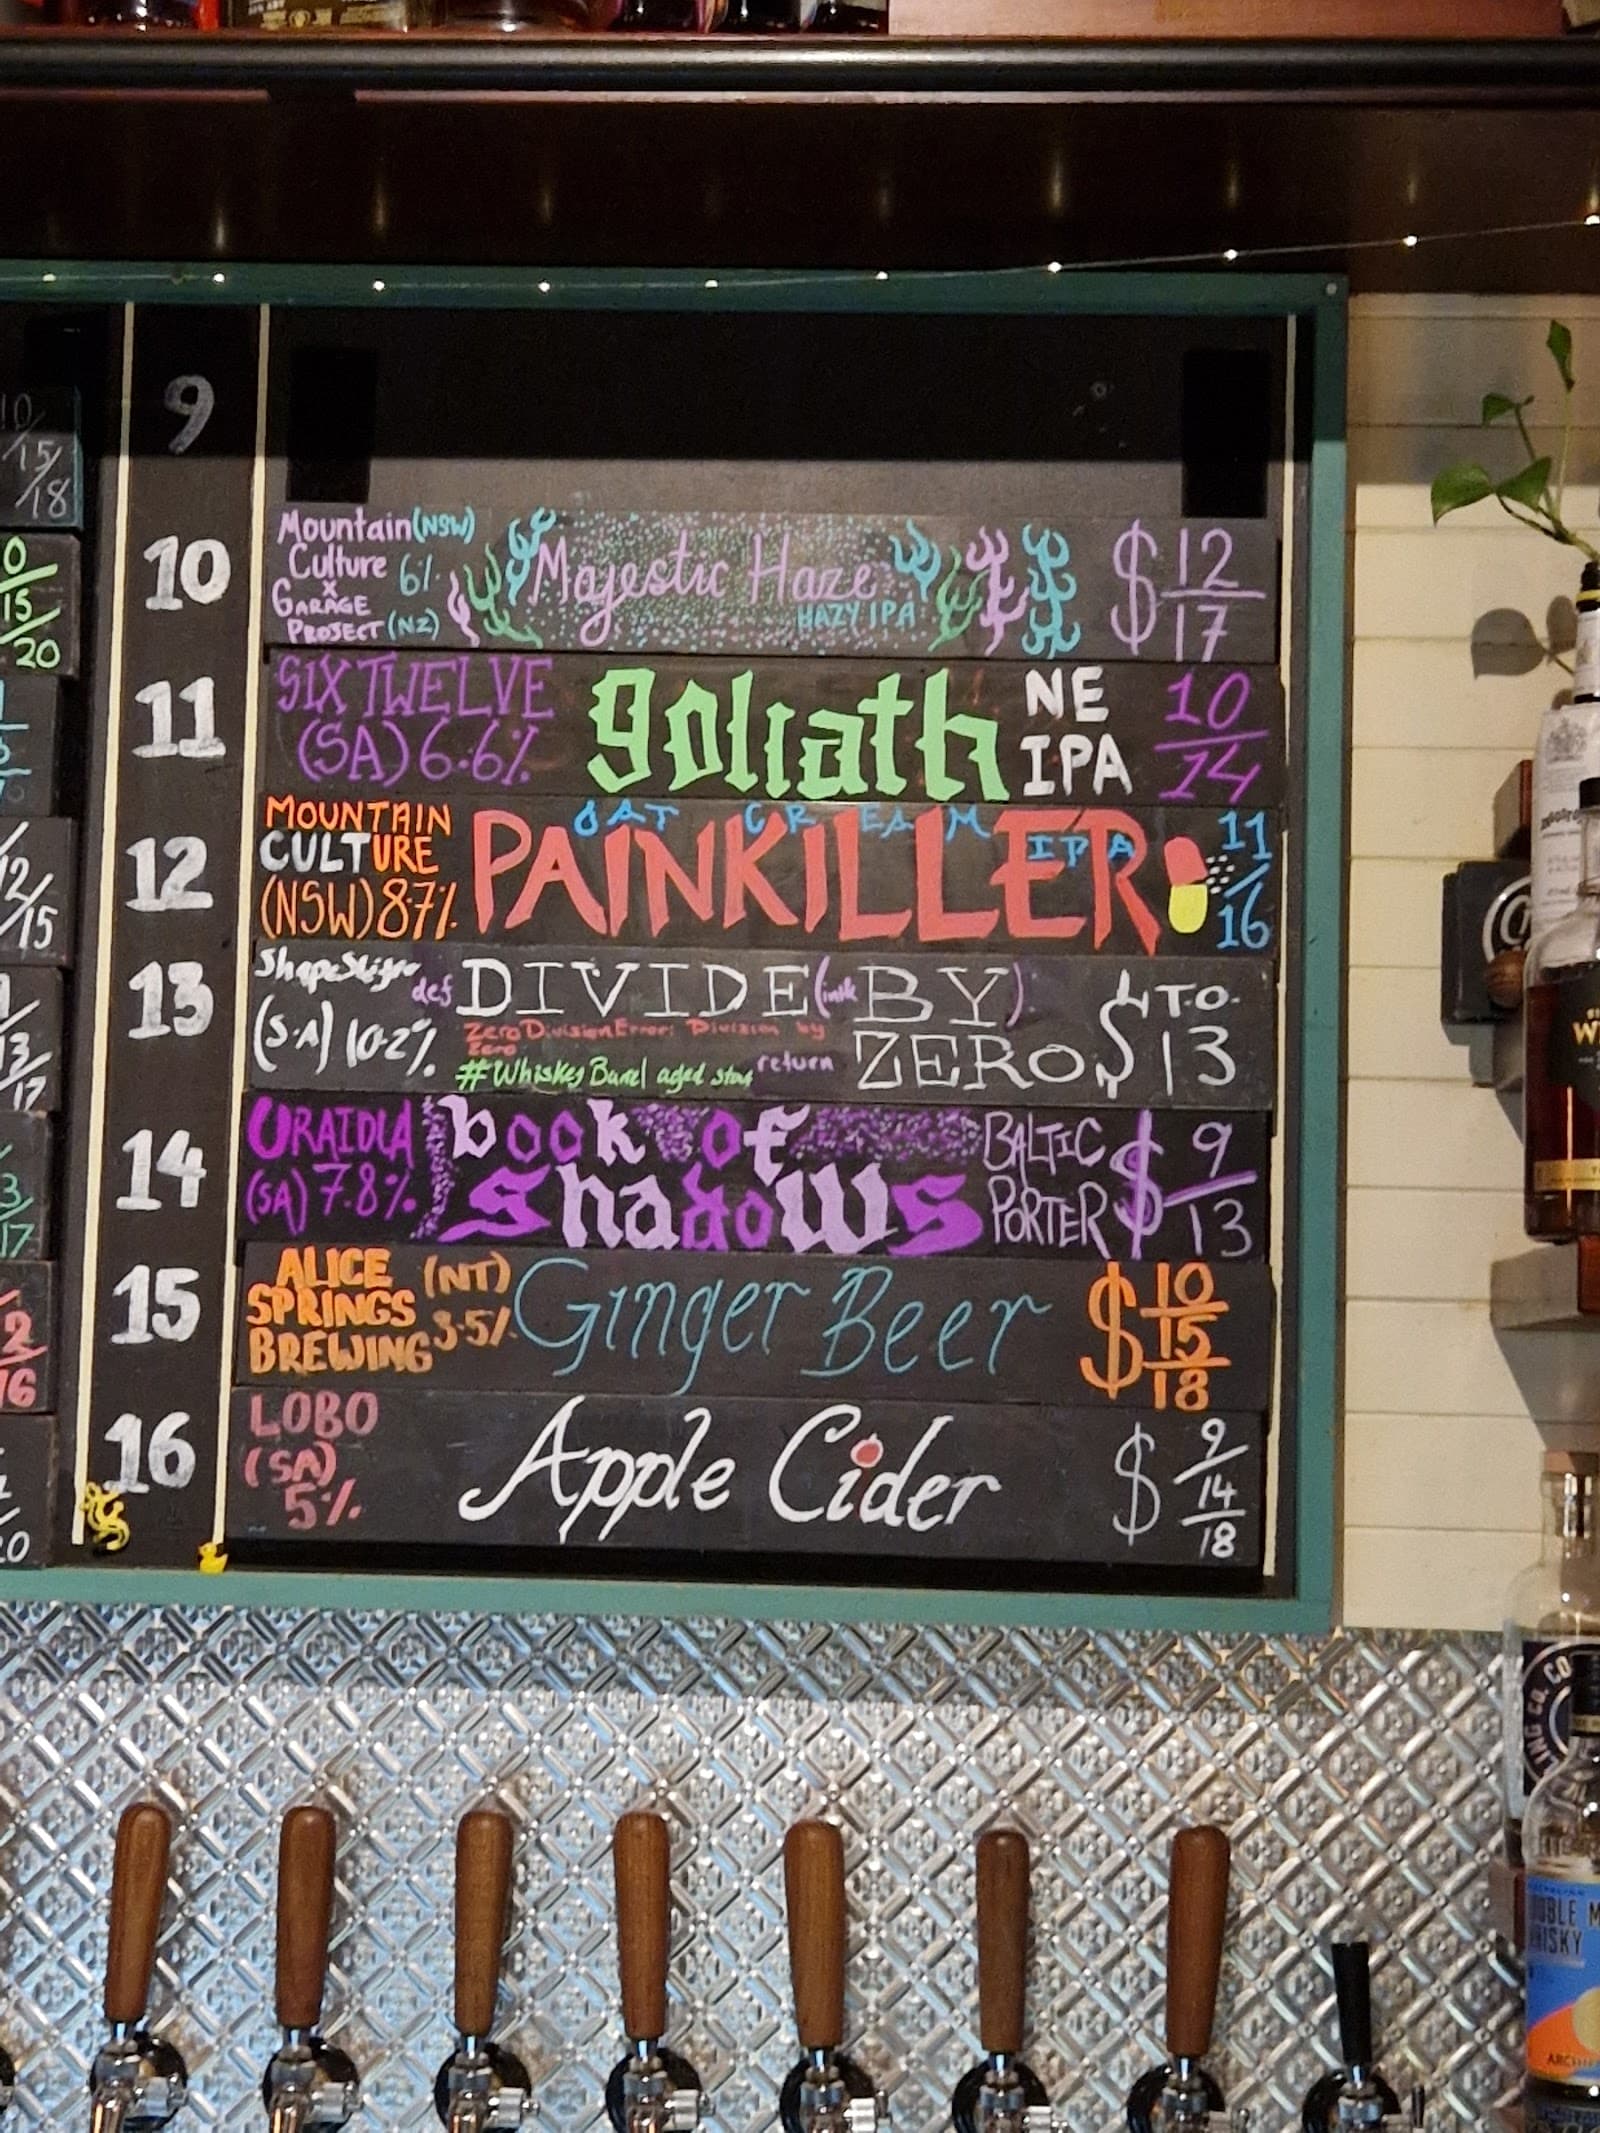 9
10
Mountain (NSW)
Culture 6%
x
GARAGE
PROJECT (NZ)
Majestic Haze
HAZY IPA
$ 12
17
11
SIX TWELVE
(SA) 6.6%
goliath
NE
IPA
10
14
12
MOUNTAIN
CULTURE
(NSW) 8.7%
OAT CREAM IPA
PAINKILLER
11
16
13
(S.A) 10.2%
def DIVIDE (int BY)
ZeroDivisionError: Division by
Zero
#Whiskey Barrel aged stout
return ZERO
T.O.
$ 13
14
URAIDLA
(SA) 7.8%
book of
Shadows
BALTIC
PORTER
$ 9
13
15
ALICE (NT)
SPRINGS
BREWING 3.5%
Ginger Beer
$ 10
15
18
16
LOBO
(SA)
5%
Apple Cider
$ 9
14
18
10
15
18
0
15
20
12
15
13
17
3
17
2
16
20
NG CO. CO
DOUBLE M
WHISKY